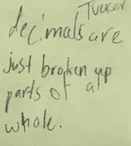 Tucker
decimals are
just broken up
parts of a
whole.